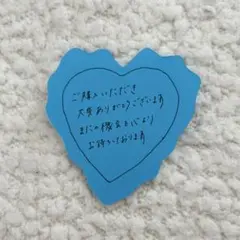 ご購入いただき
大変ありがとうございます
またの機会を心より
お待ちしております